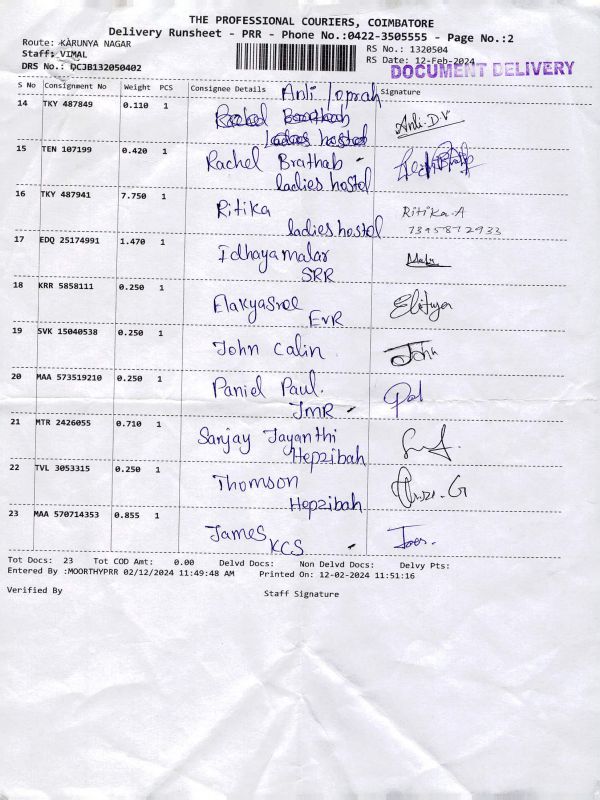 THE PROFESSIONAL COURIERS, COIMBATORE
Delivery Runsheet - PRR - Phone No.:0422-3505555 - Page No.:2
Route: KARUNYA NAGAR
RS No.: 1320504
Staff: VIMAL
RS Date: 12-Feb-2024
DRS No.: DCJB132050402
DOCUMENT DELIVERY
S No Consignment No Weight PCS Consignee Details Signature
Anli
14 TKY 487849 0.110 1
Anli.D.V
ladies hostel
15 TEN 107199 0.420 1 Rachel Brathab
ladies hostel
16 TKY 487941 7.750 1 Ritika Ritika.A
ladies hostel 7395872933
17 EDQ 25174991 1.470 1 Idhayamalar
SRR
18 KRR 5858111 0.250 1 Elakyasree
EVR
19 SVK 15040538 0.250 1 John Calin John
20 MAA 573519210 0.250 1 Paniel Paul.
JMR
21 MTR 2426055 0.710 1 Sanjay Jayanthi
Hepzibah
22 TVL 3053315 0.250 1 Thomson
Hepzibah
23 MAA 570714353 0.855 1 James
KCS
Tot Docs: 23 Tot COD Amt: 0.00 Delvd Docs: Non Delvd Docs: Delvy Pts:
Entered By :MOORTHYPRR 02/12/2024 11:49:48 AM Printed On: 12-02-2024 11:51:16
Verified By Staff Signature